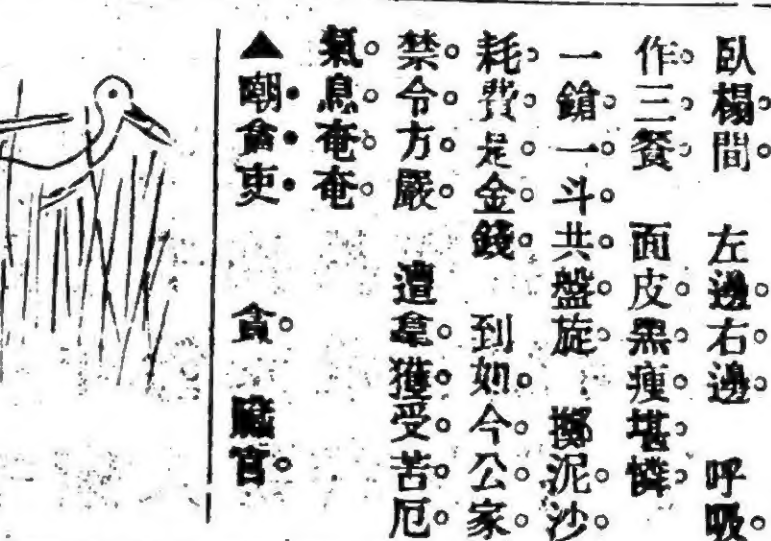 臥榻間。 左邊。右。邊。 呼吸。
作。三。餐。 面皮。黑。瘦。堪。憐。
一鎗。一。斗。共。盤。旋。 擲泥。沙。
耗。費。是。金。錢。 到如。今。公。家。
禁。令。方。嚴。 遭拿。獲。受。苦。厄。
氣。息。奄。奄
▲嘲貪吏 貪。 贓官。